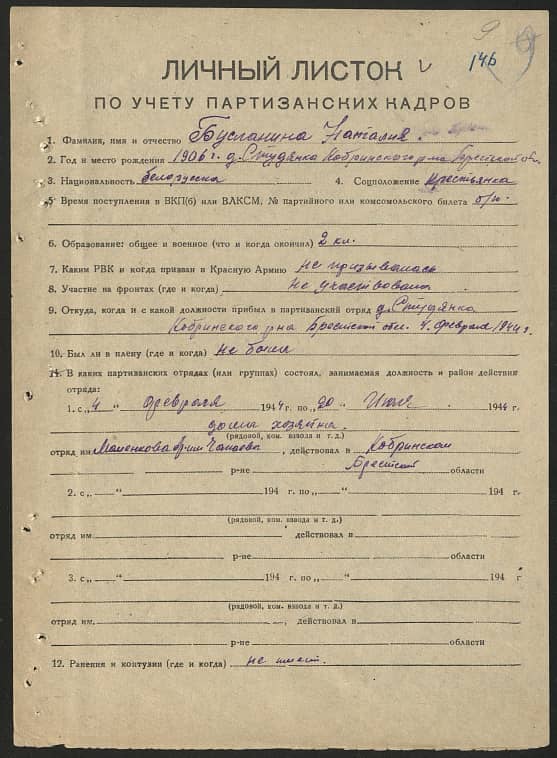 9
146
ЛИЧНЫЙ ЛИСТОК
ПО УЧЕТУ ПАРТИЗАНСКИХ КАДРОВ
1. Фамилия, имя и отчество Буспанина Наталия
2. Год и место рождения 1906 г. д. Студянка Кобринского р-на Брестской обл.
3. Национальность белорусска 4. Соцположение крестьянка
5. Время поступления в ВКП(б) или ВЛКСМ, № партийного или комсомольского билета б/п.
6. Образование: общее и военное (что и когда окончил) 2 кл.
7. Каким РВК и когда призван в Красную Армию не призывалась
8. Участие на фронтах (где и когда) не участвовала
9. Откуда, когда и с какой должности прибыл в партизанский отряд д. Студянка
Кобринского р-на Брестской обл. 4 февраля 1944 г.
10. Был ли в плену (где и когда) не была
11. В каких партизанских отрядах (или группах) состоял, занимаемая должность и район действия
отряда:
1. с „4“ февраля 1944 г. по „20“ июля 1944 г.
хозяйка
(рядовой, ком. взвода и т. д.)
отряд им. Чапаева, действовал в Кобринском
р-не Брестской области
2. с „ “ 194 г. по „ “ 194 г.
(рядовой, ком. взвода и т. д.)
отряд им. действовал в
р-не области
3. с „ “ 194 г. по „ “ 194 г.
(рядовой, ком. взвода и т. д.)
отряд им. , действовал в
р-не области
12. Ранения и контузии (где и когда) не имеет.